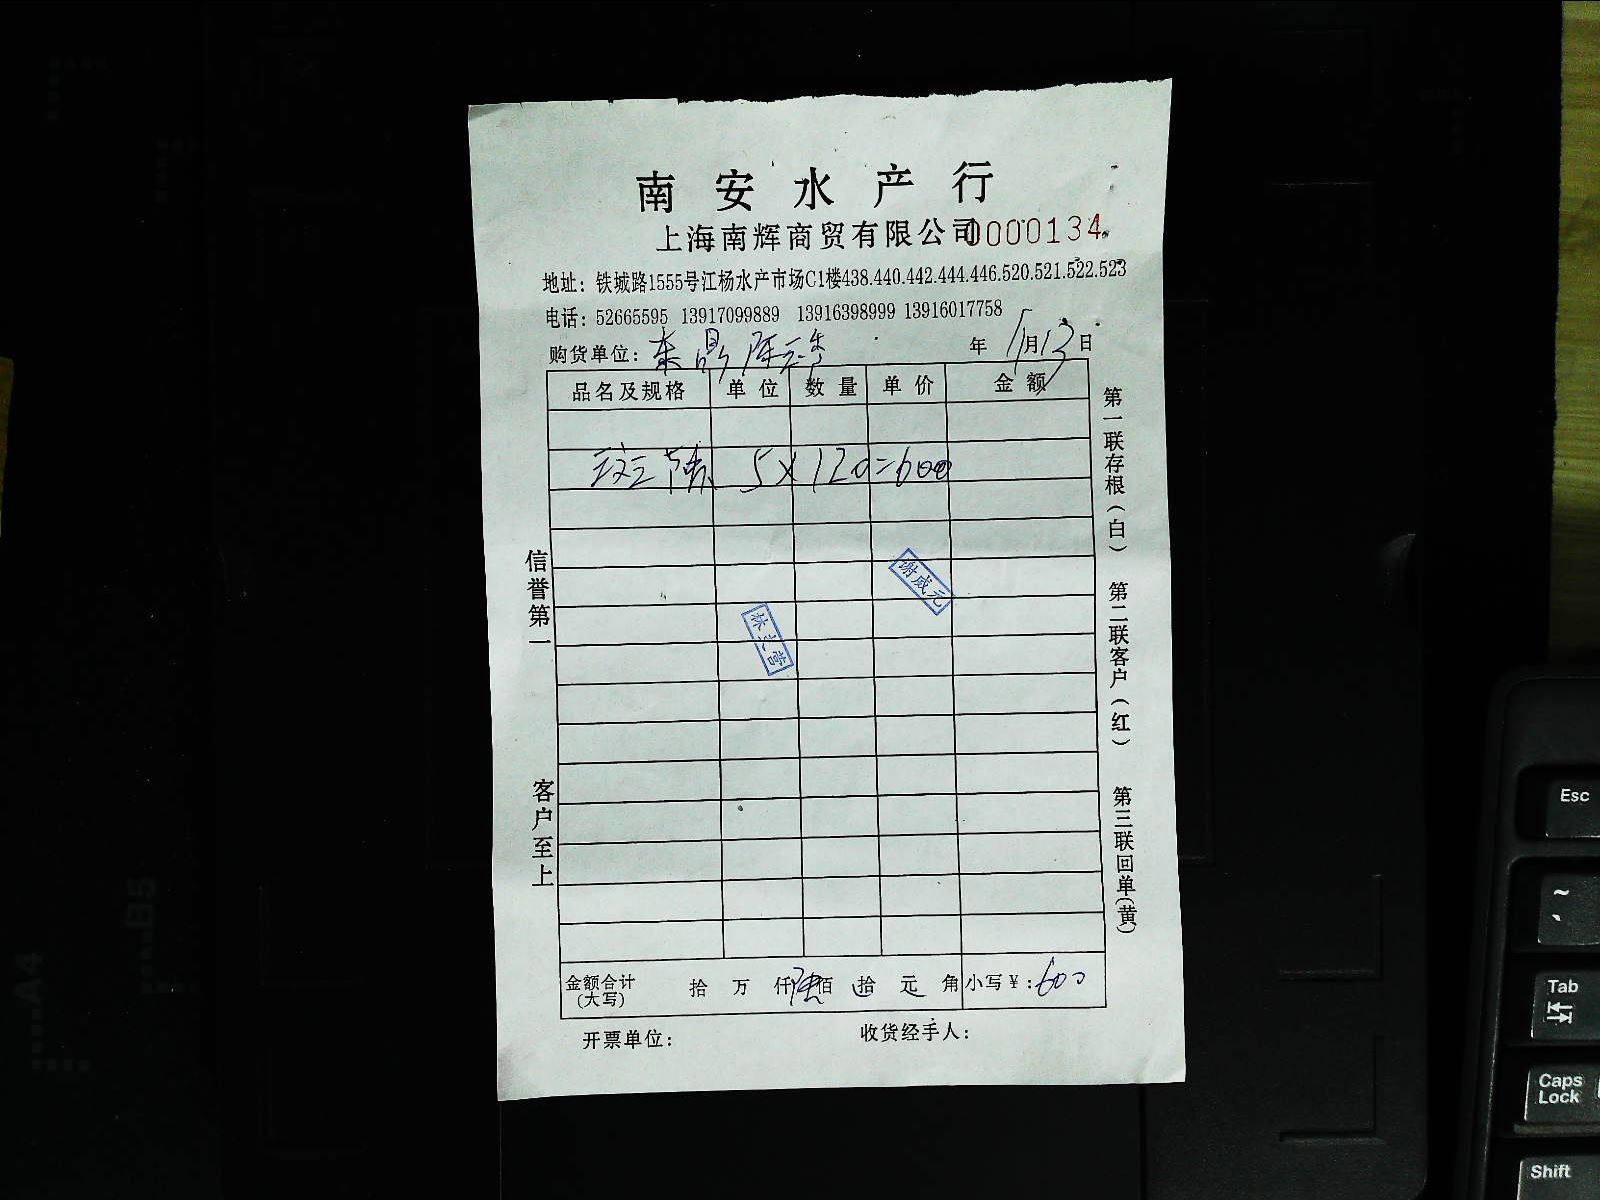 南安水产行
上海南辉商贸有限公司0000134
地址：铁城路1555号江杨水产市场C1楼438.440.442.444.446.520.521.522.523
电话：52665595 13917099889 13916398999 13916017758
购货单位： 年 1月13日
品名及规格 单位 数量 单价 金额
5×120=600
谢成元
信誉第一
客户至上
第一联存根(白) 第二联客户(红) 第三联回单(黄)
金额合计(大写) 拾 万 仟 陆佰 拾 元 角 小写¥:600
开票单位： 收货经手人：
Esc
~
Tab
Caps Lock
Shift
A4
B5